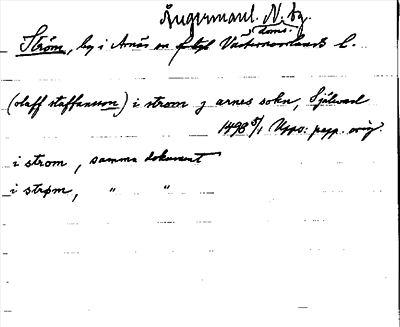 Ångermanl. N. bg.
doms.
Ström, by i Arnäs sn Västernorrlands l.
(olaff staffansson) i strom j arnes sokn, Själevad
1498 5/1 Upps: papp. orig.
i strom, samma dokument
i strøm, " "